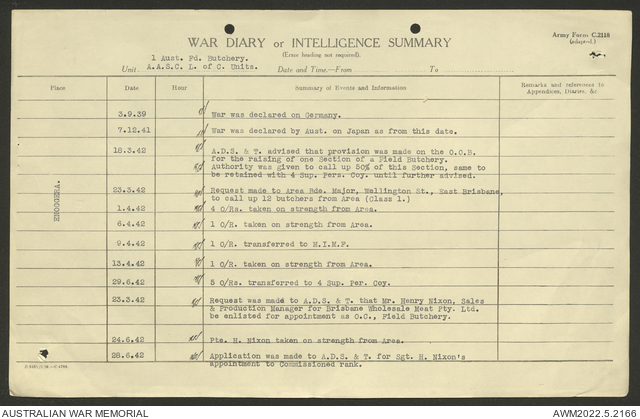 Army Form C.2118
(adapted.)
WAR DIARY or INTELLIGENCE SUMMARY
(Erase heading not required).
1 Aust. Fd. Butchery.
Unit A.A.S.C. L. of C. Units. Date and Time.—From To
Place Date Hour Summary of Events and Information Remarks and references to Appendices, Diaries, &c
ENOGGERA.
3.9.39 War was declared on Germany.
7.12.41 War was declared by Aust. on Japan as from this date.
18.3.42 A.D.S. & T. advised that provision was made on the O.O.B.
for the raising of one Section of a Field Butchery.
Authority was given to call up 50% of this Section, same to
be retained with 4 Sup. Pers. Coy. until further advised.
23.3.42 Request made to Area Bde. Major, Wellington St., East Brisbane,
to call up 12 butchers from Area (Class 1.)
1.4.42 4 O/Rs. taken on strength from Area.
6.4.42 1 O/R. taken on strength from Area.
9.4.42 1 O/R. transferred to M.I.M.F.
13.4.42 1 O/R. taken on strength from Area.
29.6.42 5 O/Rs. transferred to 4 Sup. Per. Coy.
23.3.42 Request was made to A.D.S. & T. that Mr. Henry Nixon, Sales
& Production Manager for Brisbane Wholesale Meat Pty. Ltd.
be enlisted for appointment as O.C., Field Butchery.
24.6.42 Pte. H. Nixon taken on strength from Area.
28.6.42 Application was made to A.D.S & T. for Sgt. H. Nixon's
appointment to Commissioned rank.
AUSTRALIAN WAR MEMORIAL AWM2022.5.2166